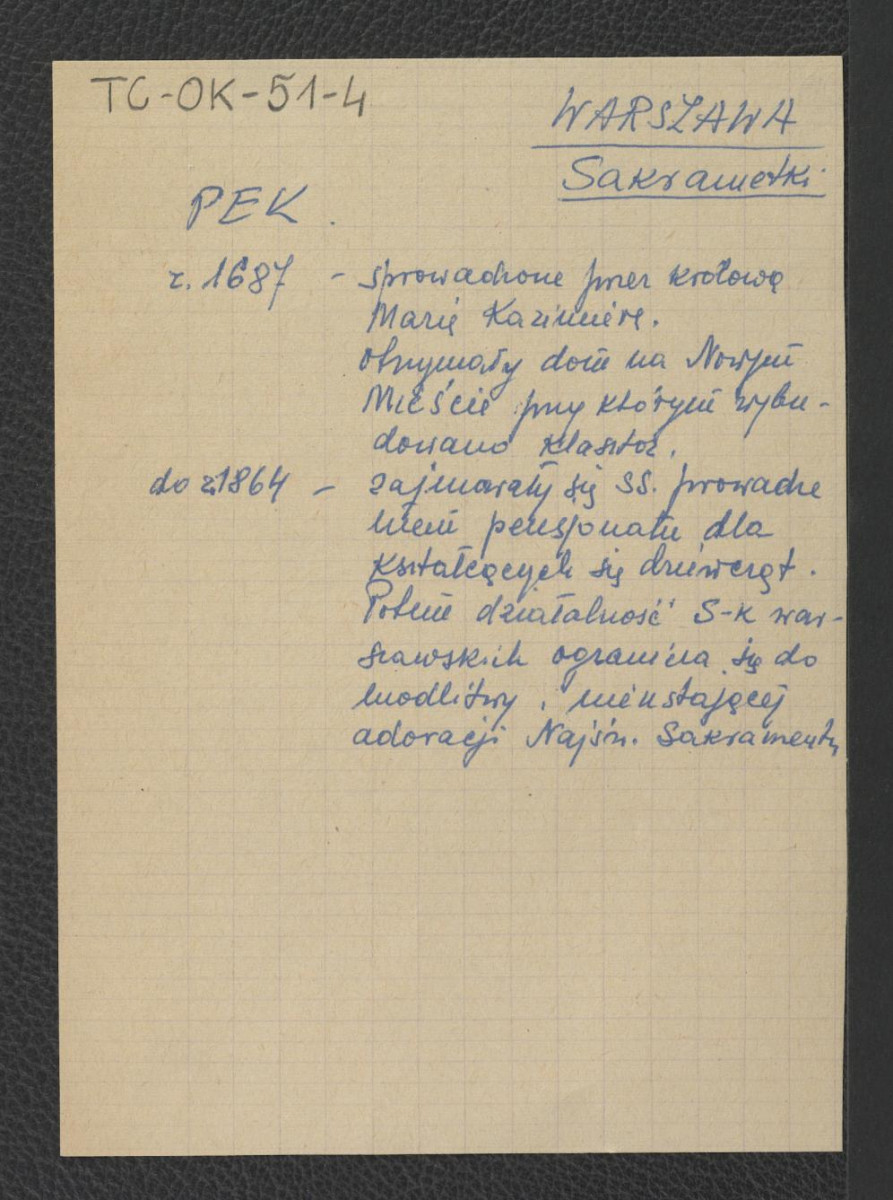 TC-OK-51-4
WARSZAWA
Sakramentki
PEK.
r. 1687 - sprowadzone przez królową
Marię Kazimierę.
Otrzymały dom na Nowym
Mieście przy którym wybu-
dowano klasztor.
do r. 1864 - zajmowały się SS. prowadze
niem pensjonatu dla
kształcących się dziewcząt.
Potem działalność S-k war-
szawskich ogranicza się do
modlitwy i nieustającej
adoracji Najśw. Sakramentu